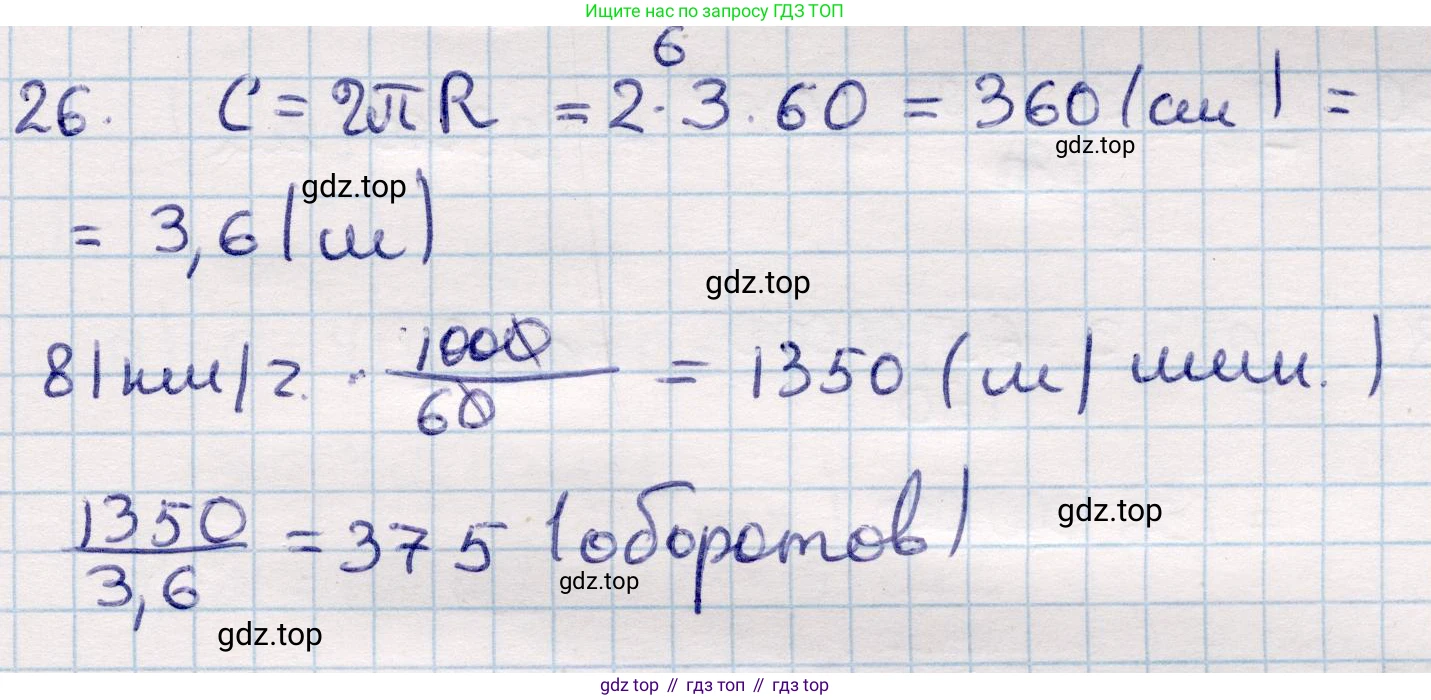 Ищите нас по запросу ГДЗ ТОП
6
26. C = 2πR = 2 · 3 · 60 = 360 (см) =
gdz.top
gdz.top
= 3,6 (м)
gdz.top
81 км/ч. · 1000/60 = 1350 (м/мин.)
1350/3,6 = 375 (оборотов)
gdz.top
gdz.top
gdz.top
gdz top // гдз топ // гдз top